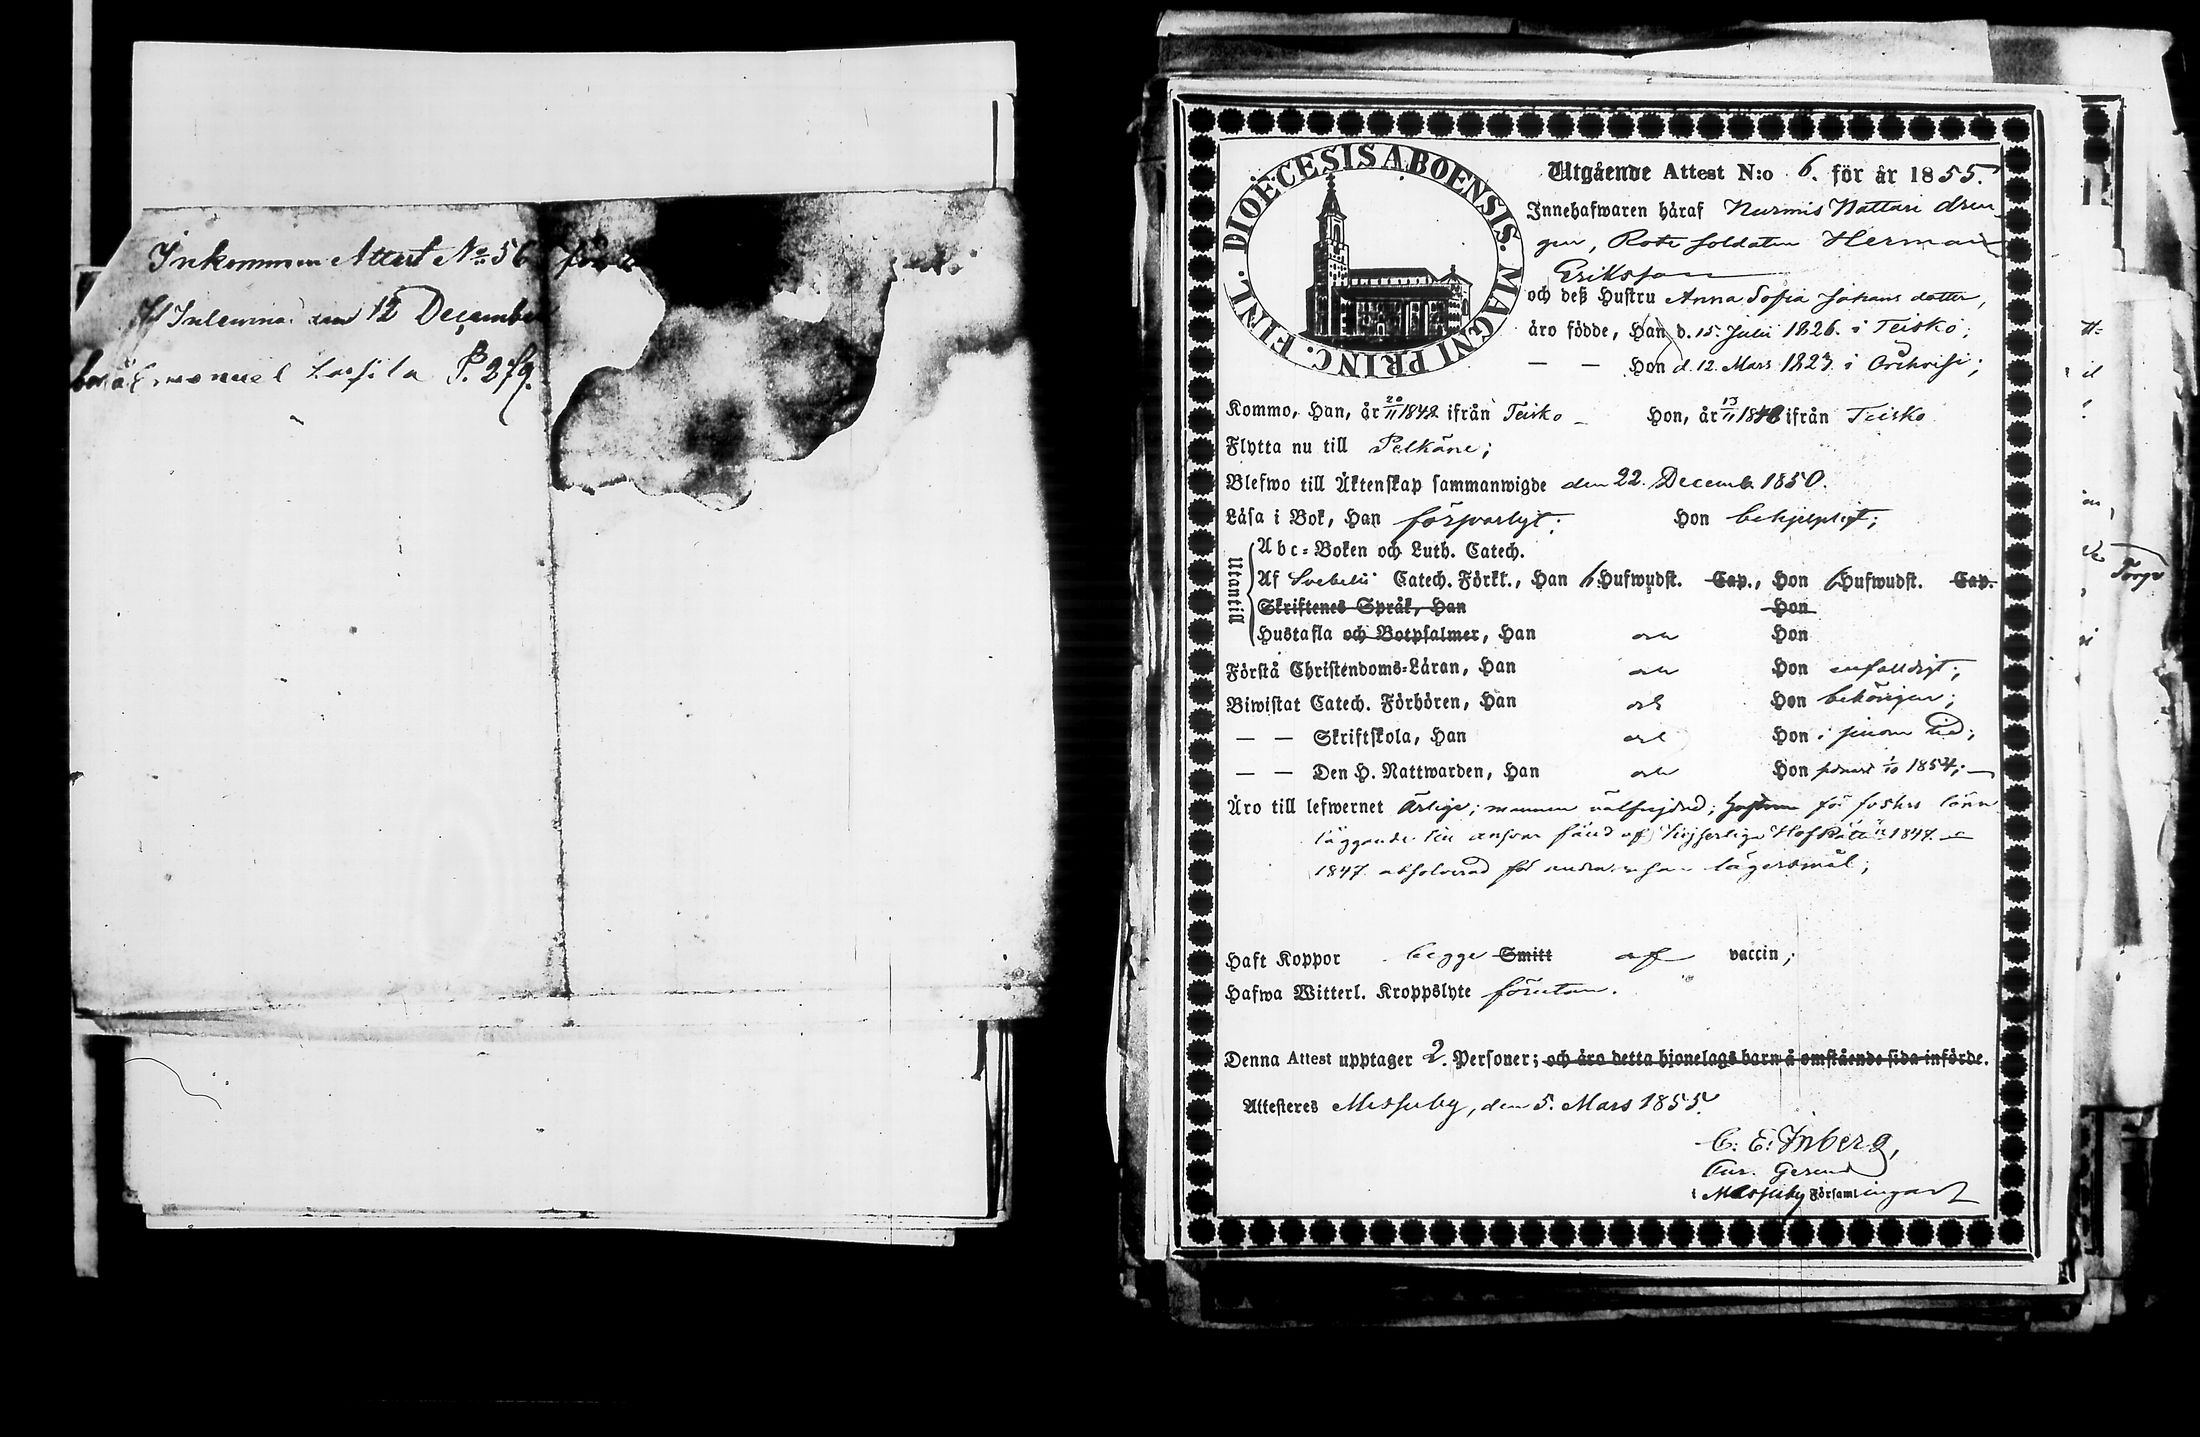 Inkommen Attest No 56 för
Inlemnad den 12 December
P. 279.
DIOECESIS ABOENSIS. MAGNI PRINC. FINL.
Utgående Attest N:o 6. för år 1855.
Innehafwaren håraf Nurmis Nattari dren-
gen, Rote Soldaten Herman
Eriksson
och deß Hustru Anna Sofia Johans dotter,
åro födde, Han d. 15. Julii 1826. i Teisko;
— — Hon d. 12. Mars 1823. i Orihvesi;
Kommo, Han, år 20/11 1842 ifrån Teisko – Hon, år 13/11 1848 ifrån Teisko
Flytta nu till Pelkäne;
Blefwo till Äktenskap sammanwigde den 22. Decemb. 1850.
Låsa i Bok, Han försvarligt; Hon behjelpligt;
Utantill
Abc-Boken och Luth. Catech.
Af Svebelii Catech. Förkl., Han 6 Hufwudst. Cap., Hon 6 Hufwudst. Cap.
Skriftenes Språk, Han Hon
Hustafla och Botpsalmer, Han och Hon
Förstå Christendoms-Låran, Han och Hon enfalldigt;
Biwistat Catech. Förhören, Han och Hon behörigen;
— — Skriftskola, Han och Hon i sinom tid;
— — Den H. Nattwarden, Han och Hon senast 1/10 1854;
Äro till lefwernet ärlige; mannen välfrejdad; Hustrun för fosters lönn
läggande till answar fäld af Kejserliga HofRätten 1847. –
1847 absolverad för andra resan lägersmål;
Haft Koppor begge Smitt af vaccin;
Hafwa Witterl. Kroppslyte förutan.
Denna Attest upptager 2. Personer; och äro detta hjonelags barn å omstående sida införde.
Attesteres Messuby, den 5. Mars 1855.
C. E. Inberg,
Cur. Gerend
i Messuby Församlingar